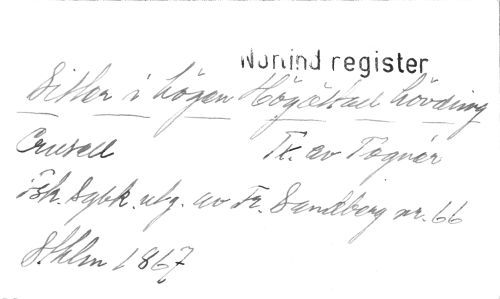 Norlind register
Sitter i högen Högättad hövding
Crusell Tx. av Tegnér
Fsk. Sgbk. utg. av Fr. Sandberg nr. 66
Sthlm 1867